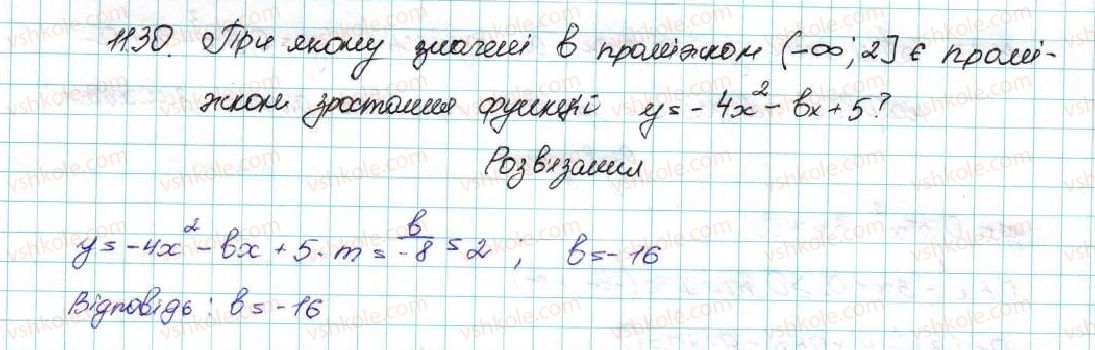 1130. При якому значені в проміжком (-∞; 2] є промі-
жком зростання функції y = -4x² - bx + 5?
Розв'язання
y = -4x² - bx + 5. m = b/-8 = 2 ; b = -16
Відповідь: b = -16